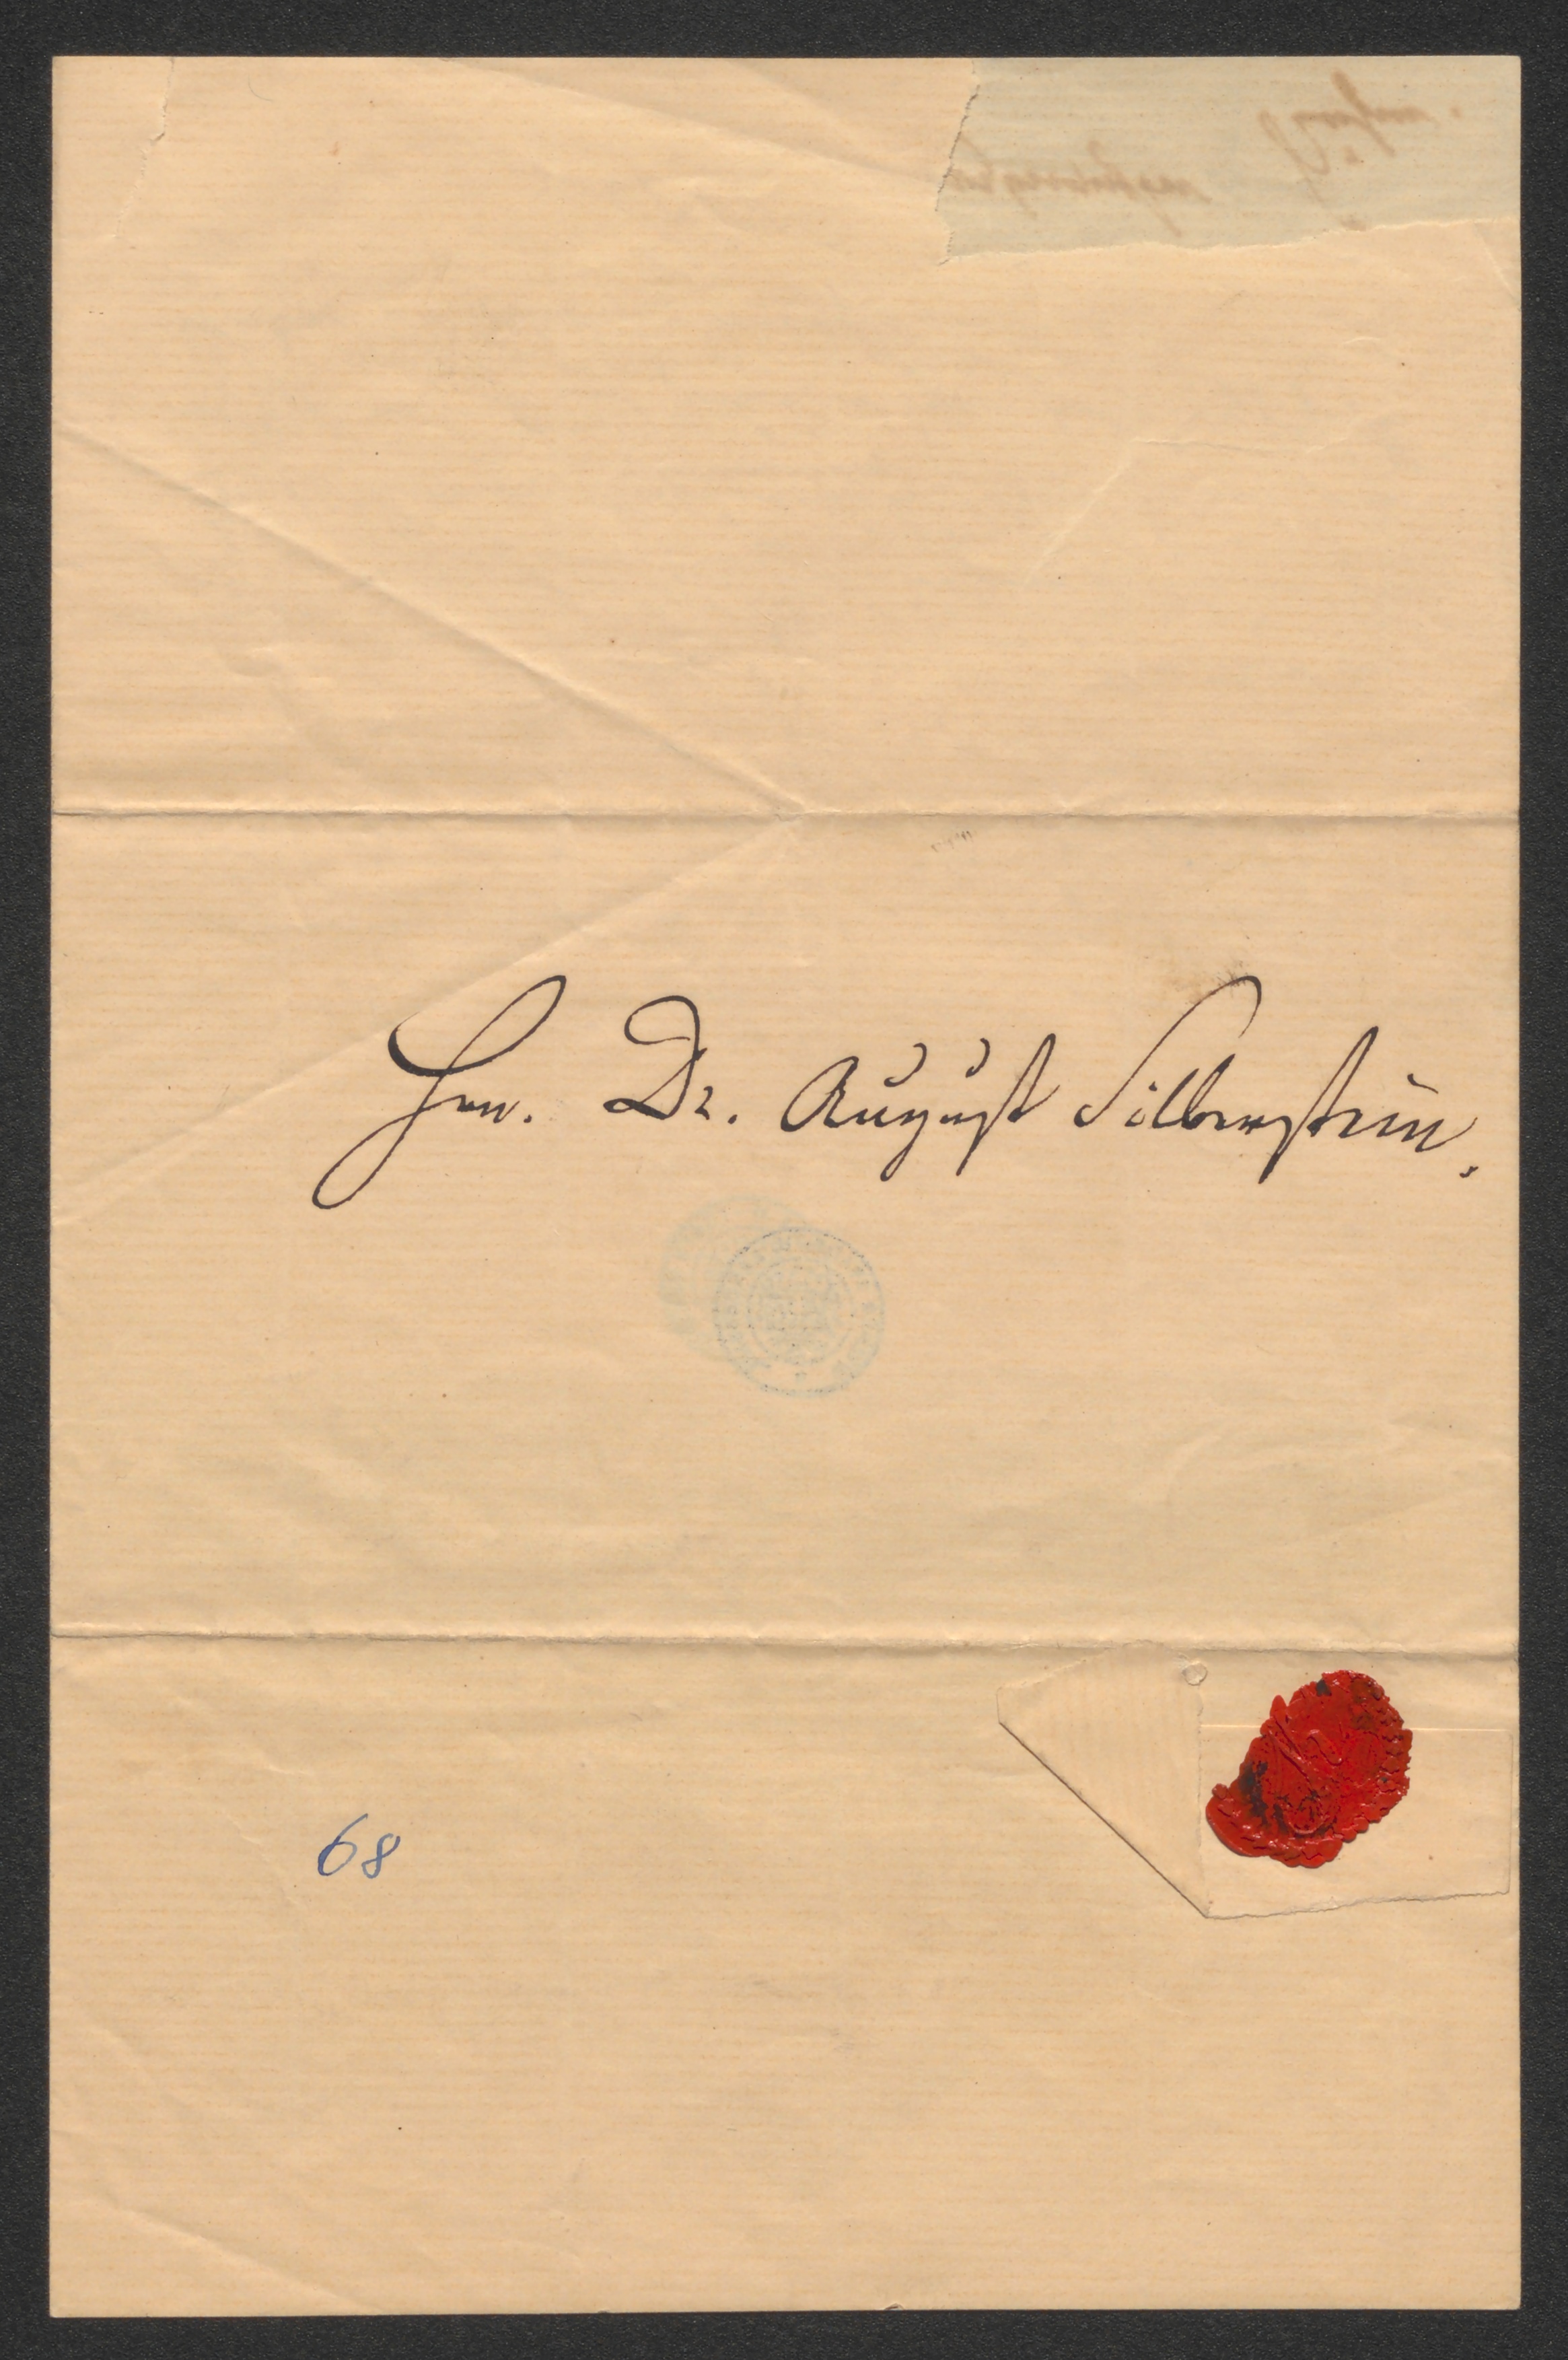 Hrn. Dr. August Silberstein.
68